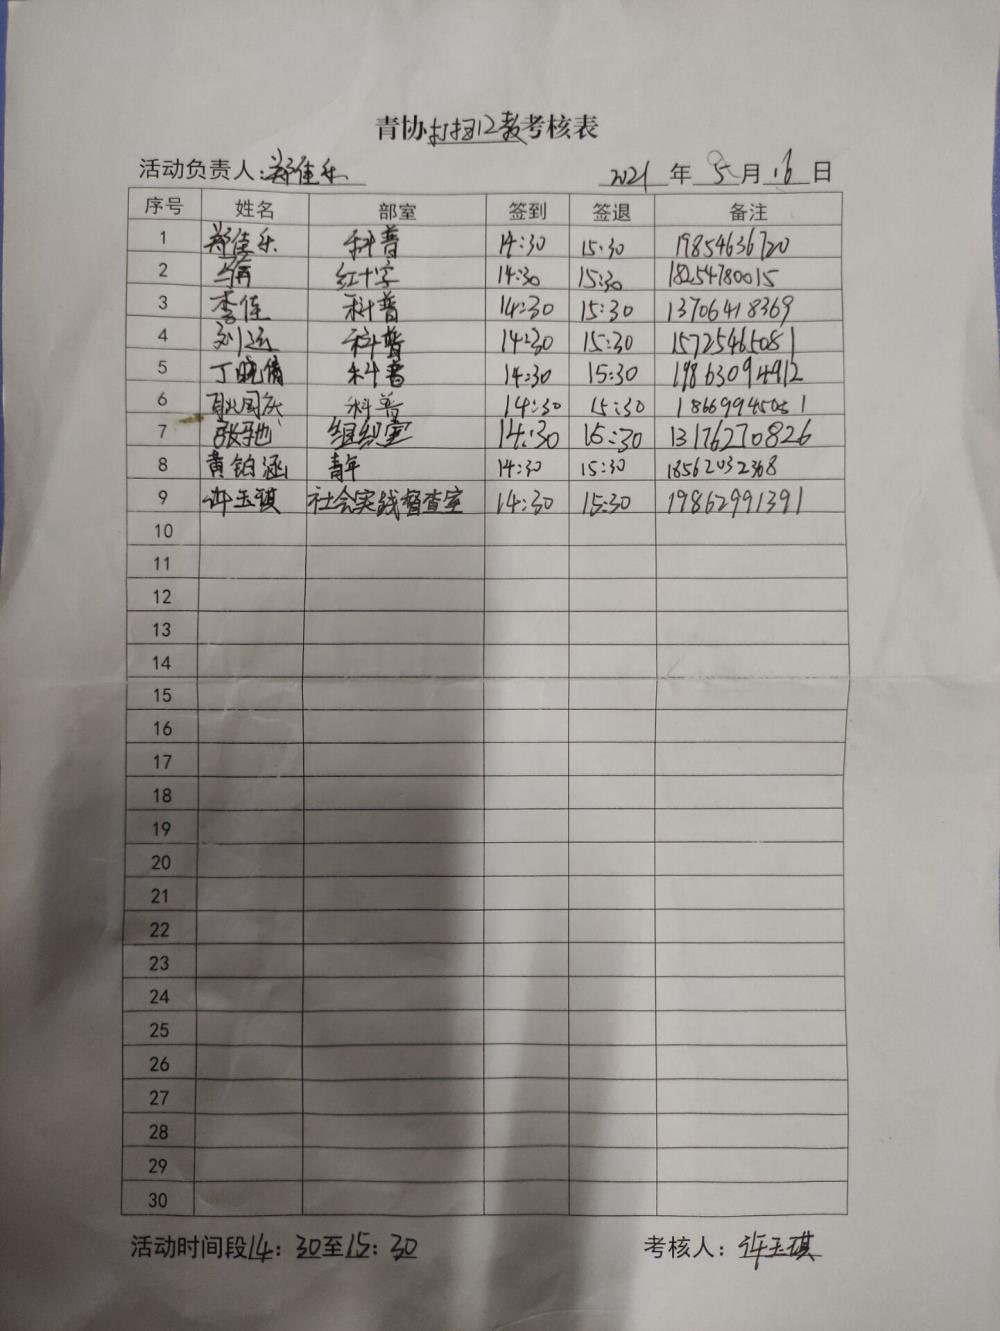 青协打扫12教考核表
活动负责人:郑佳乐 2021 年 5 月 16 日
序号 姓名 部室 签到 签退 备注
1 郑佳乐 科普 14:30 15:30 19854636720
2 红十字 14:30 15:30 18254780015
3 李佳 科普 14:30 15:30 13706418369
4 科普 14:30 15:30 15725465081
5 丁晓倩 科普 14:30 15:30 19863094912
6 耿国庆 科普 14:30 15:30 18669945051
7 张驰 组织室 14:30 15:30 13176270826
8 黄铂涵 青年 14:30 15:30 18562032368
9 许玉琪 社会实践督查室 14:30 15:30 19862991391
10
11
12
13
14
15
16
17
18
19
20
21
22
23
24
25
26
27
28
29
30
活动时间段14:30至15:30 考核人:许玉琪